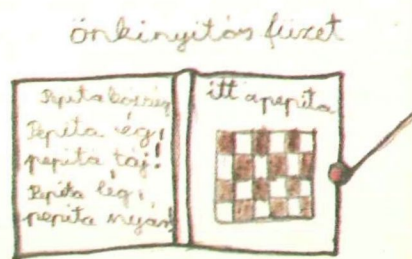 önkinyitós füzet
Pepita község
Pepita ég,
pepita táj!
Pepita lég,
pepita nyár!
itt a pepita